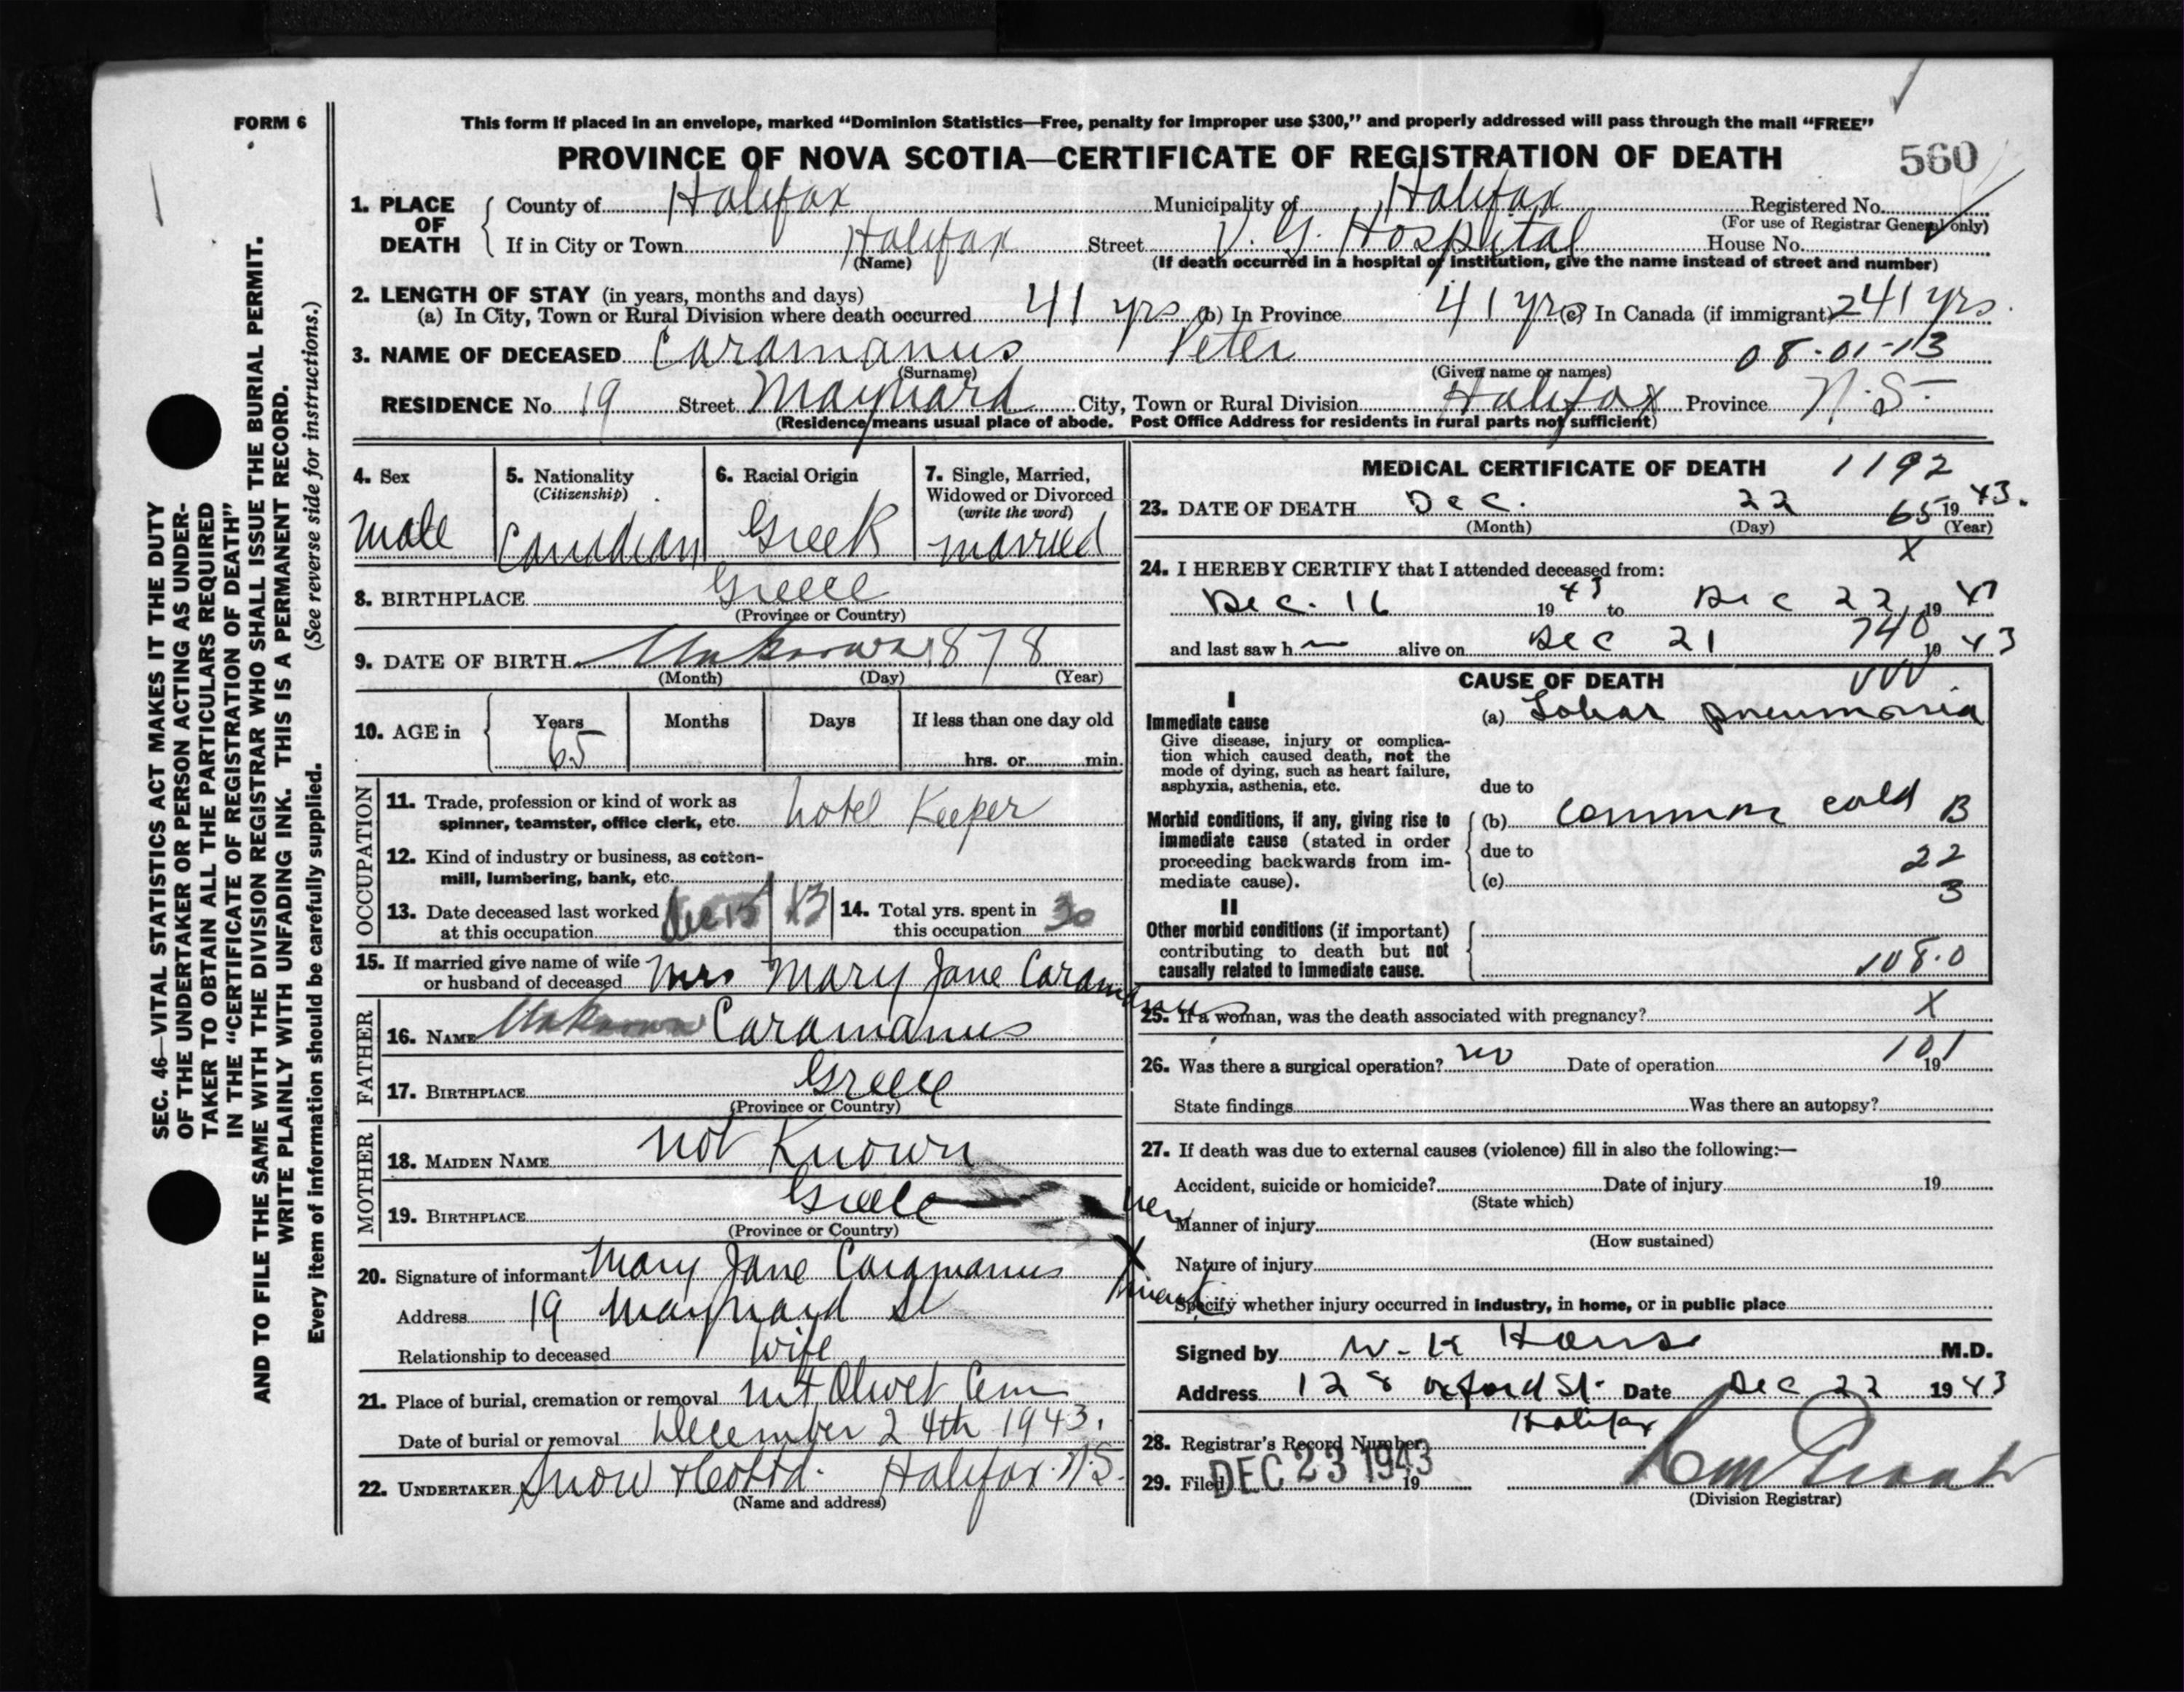 FORM 6
This form if placed in an envelope, marked “Dominion Statistics—Free, penalty for improper use $300,” and properly addressed will pass through the mail “FREE”
PROVINCE OF NOVA SCOTIA—CERTIFICATE OF REGISTRATION OF DEATH 560
1. PLACE OF DEATH
County of Halifax Municipality of Halifax Registered No.
(For use of Registrar General only)
If in City or Town Halifax Street V. G. Hospital House No.
(Name) (If death occurred in a hospital or institution, give the name instead of street and number)
2. LENGTH OF STAY (in years, months and days)
(a) In City, Town or Rural Division where death occurred 41 yrs (b) In Province 41 yrs (c) In Canada (if immigrant) 41 yrs.
3. NAME OF DECEASED Caramanus Peter 08-01-13
(Surname) (Given name or names)
RESIDENCE No. 19 Street Maynard City, Town or Rural Division Halifax Province N.S.
(Residence means usual place of abode. Post Office Address for residents in rural parts not sufficient)
4. Sex
Male
5. Nationality
(Citizenship)
Canadian
6. Racial Origin
Greek
7. Single, Married,
Widowed or Divorced
(write the word)
married
8. BIRTHPLACE Greece
(Province or Country)
9. DATE OF BIRTH Unknown 1878
(Month) (Day) (Year)
10. AGE in Years Months Days If less than one day old
65 hrs. or min.
OCCUPATION
11. Trade, profession or kind of work as
spinner, teamster, office clerk, etc. hotel Keeper
12. Kind of industry or business, as cotton-
mill, lumbering, bank, etc.
13. Date deceased last worked
at this occupation Dec 15
14. Total yrs. spent in
this occupation 30
15. If married give name of wife
or husband of deceased Mrs Mary Jane Caramanus
FATHER
16. NAME Unknown Caramanus
17. BIRTHPLACE Greece
(Province or Country)
MOTHER
18. MAIDEN NAME not Known
19. BIRTHPLACE Greece
(Province or Country)
20. Signature of informant Mary Jane Caramanus X
Address 19 Maynard St
Relationship to deceased Wife
21. Place of burial, cremation or removal Mt Olivet Cem
Date of burial or removal December 24th 1943.
22. UNDERTAKER Snow & Co Ltd. Halifax N.S.
(Name and address)
MEDICAL CERTIFICATE OF DEATH 1192
23. DATE OF DEATH Dec. 22 65 1943.
(Month) (Day) (Year)
X
24. I HEREBY CERTIFY that I attended deceased from:
Dec. 16 1943 to Dec 22, 1943
and last saw h alive on Dec 21 740 1943
CAUSE OF DEATH
I
Immediate cause
Give disease, injury or complica-
tion which caused death, not the
mode of dying, such as heart failure,
asphyxia, asthenia, etc.
(a) Lobar pneumonia
due to
Morbid conditions, if any, giving rise to
immediate cause (stated in order
proceeding backwards from im-
mediate cause).
(b) common cold B
due to 22
(c) 3
II
Other morbid conditions (if important)
contributing to death but not
causally related to immediate cause. 108.0
25. If a woman, was the death associated with pregnancy? X
26. Was there a surgical operation? no Date of operation 101 19
State findings Was there an autopsy?
27. If death was due to external causes (violence) fill in also the following:—
Accident, suicide or homicide? Date of injury 19
(State which)
Manner of injury
(How sustained)
Nature of injury
Specify whether injury occurred in industry, in home, or in public place
Signed by M.D.
Address 128 Oxford St. Date Dec 22 1943
Halifax
28. Registrar's Record Number
29. Filed DEC 23 1943 19
(Division Registrar)
SEC. 46—VITAL STATISTICS ACT MAKES IT THE DUTY
OF THE UNDERTAKER OR PERSON ACTING AS UNDER-
TAKER TO OBTAIN ALL THE PARTICULARS REQUIRED
IN THE “CERTIFICATE OF REGISTRATION OF DEATH”
AND TO FILE THE SAME WITH THE DIVISION REGISTRAR WHO SHALL ISSUE THE BURIAL PERMIT.
WRITE PLAINLY WITH UNFADING INK. THIS IS A PERMANENT RECORD.
Every item of information should be carefully supplied. (See reverse side for instructions.)